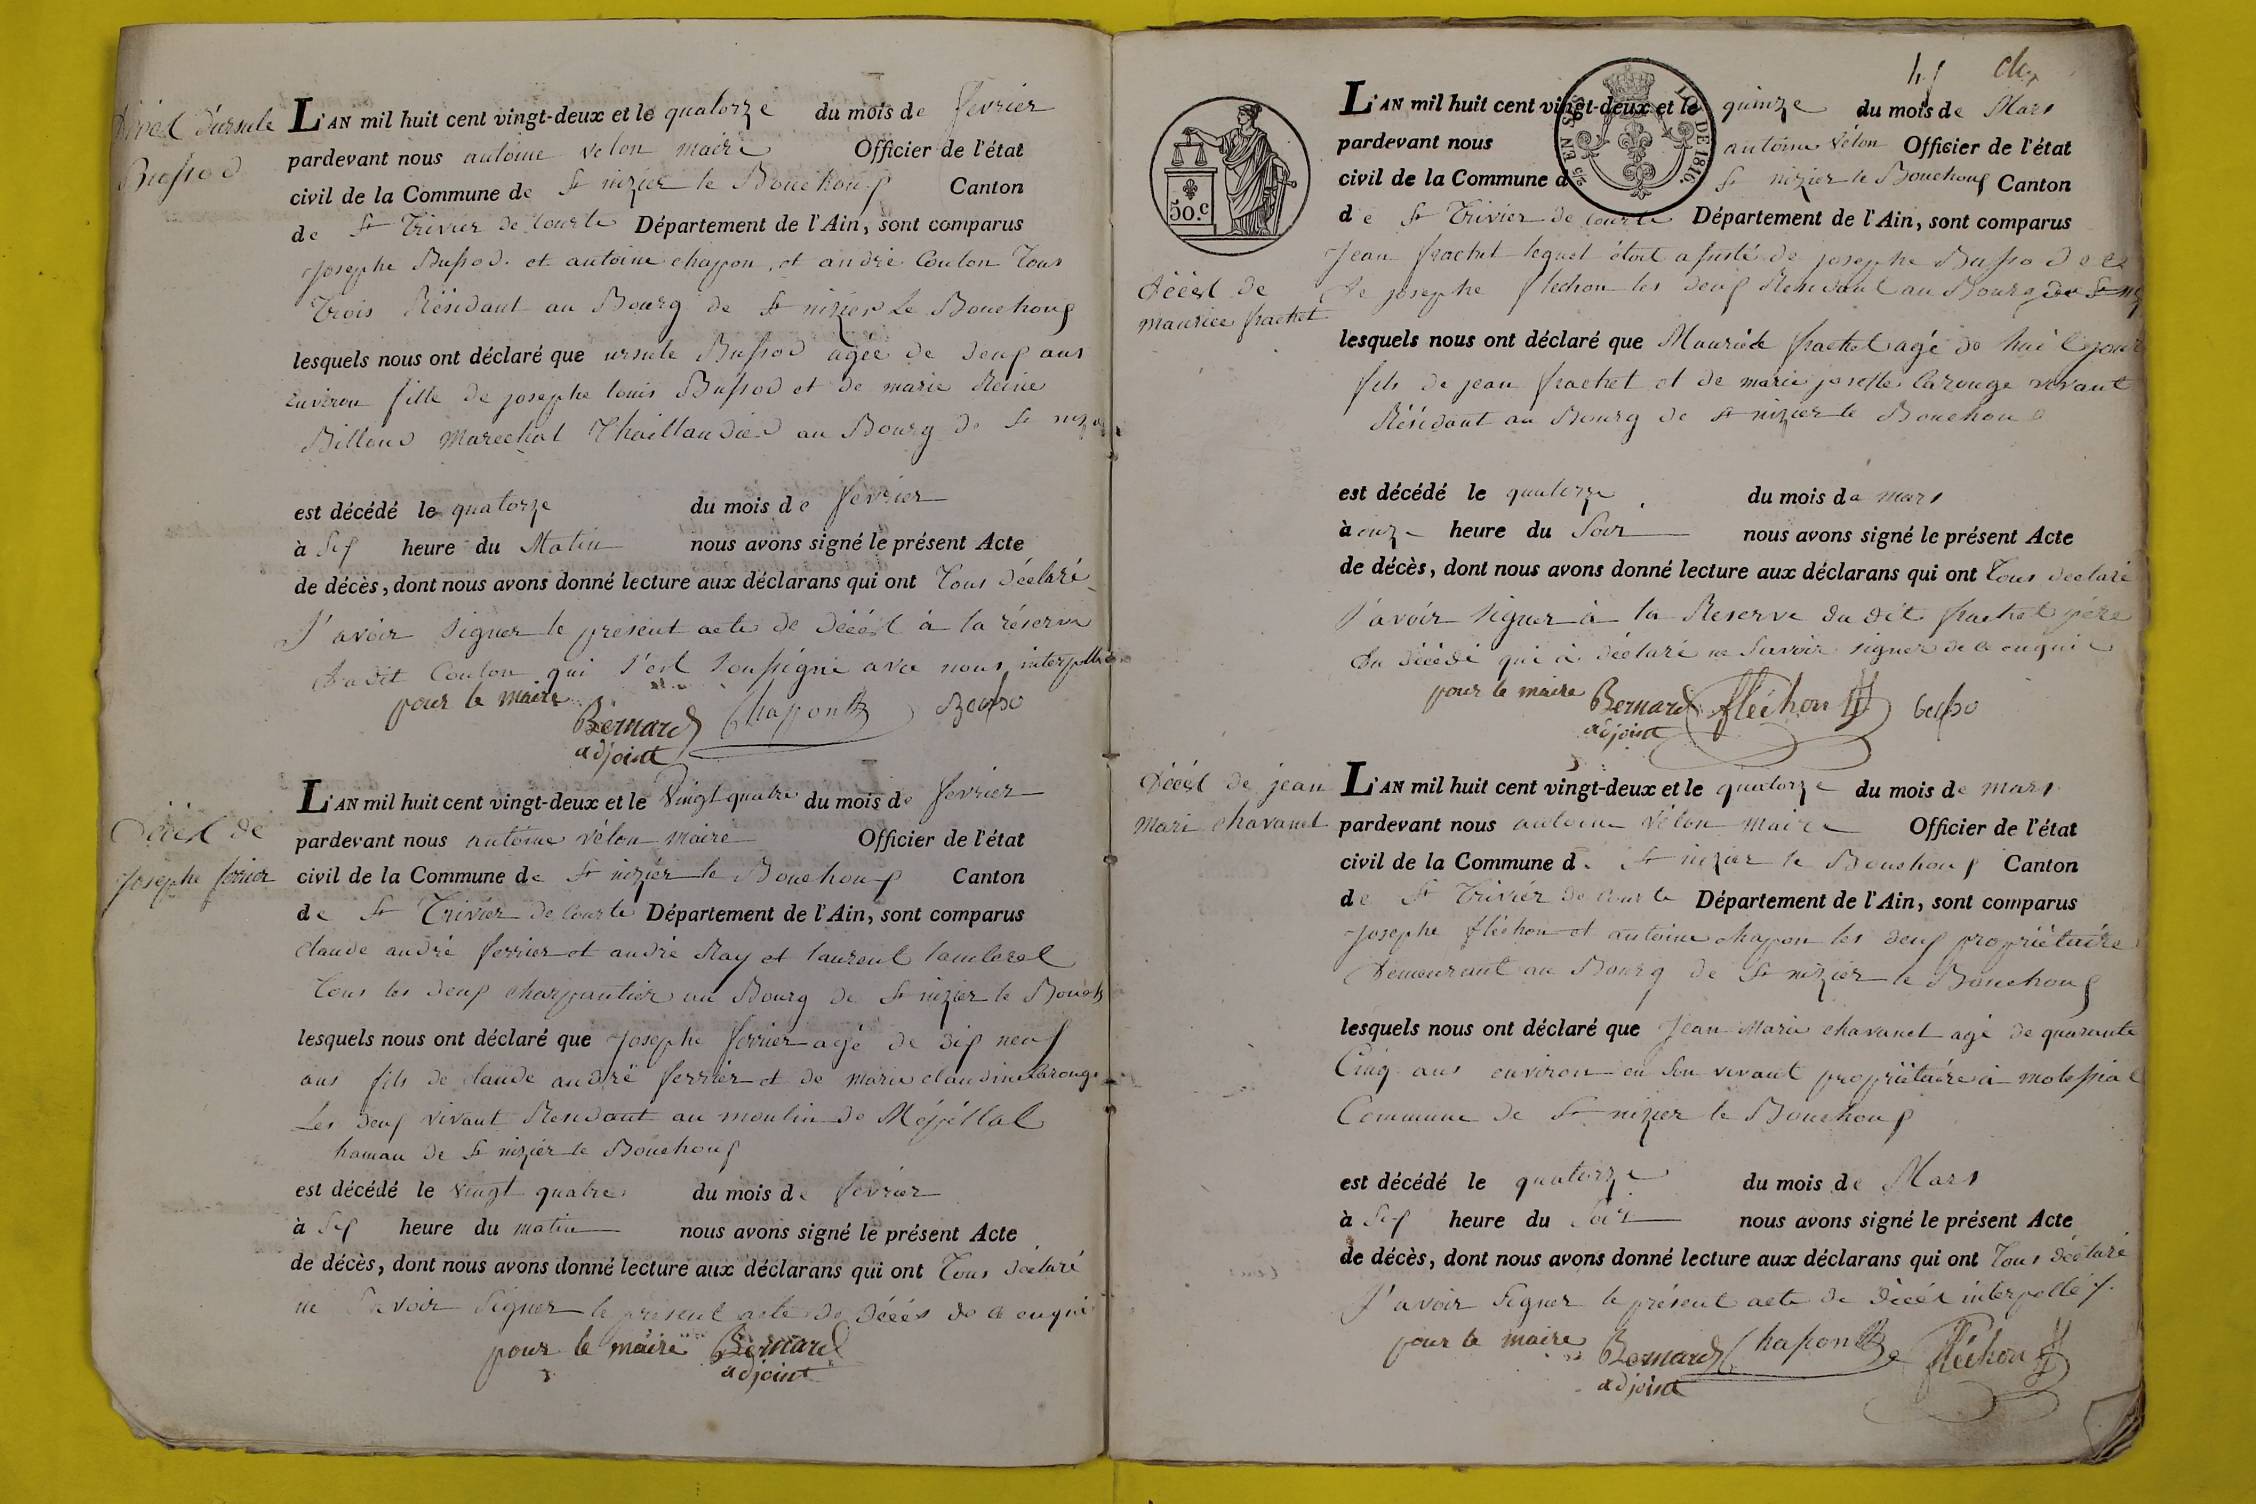 Décèl d'ursule
Bussod
L'AN mil huit cent vingt-deux et le quatorze du mois de fevrier
pardevant nous antoine velon maire Officier de l'état
civil de la Commune de St nizier le Bouchoux Canton
de St Trivier de Courte Département de l'Ain, sont comparus
josephe Bussod. et antoine chapon, et andré Coulon Tous
Trois Résidant au Bourg de St nizier Le Bouchoux
lesquels nous ont déclaré que ursule Bussod agée de deux ans
Environ fille de josephe louis Bussod et de marie Reine
Billoud Marechal Thaillandier au Bourg de St nizier
est décédé le quatorze du mois de fevrier
à Six heure du Matin nous avons signé le présent Acte
de décès, dont nous avons donné lecture aux déclarans qui ont Tous déclaré
S'avoir signer le present acte de décèl à la réserve
dudit Coulon qui s'est soussigné avec nous, interpellé
pour le maire Bernard Chapon
adjoint
Décèl de
josephe ferrier
L'AN mil huit cent vingt-deux et le Vingt quatre du mois de fevrier
pardevant nous antoine vélon maire Officier de l'état
civil de la Commune de St nizier le Bouchoux Canton
de St Trivier de Courte Département de l'Ain, sont comparus
claude andré ferrier et andré Ray et laurent
Tous les deux charpantier au Bourg de St nizier le Bouch
lesquels nous ont déclaré que josephe ferrier agé de dix neuf
ans fils de claude andré ferrier et de marie claudine larouge
Les deux vivant Résidant au moulin de
hamau de St nizier le Bouchoux
est décédé le vingt quatre du mois de fevrier
à Six heure du matin nous avons signé le présent Acte
de décès, dont nous avons donné lecture aux déclarans qui ont Tous déclaré
ne Savoir Signer le présent acte de décès de ce enquis
pour le maire Bernard
adjoint
50.C
LOI DE 1816.
L'AN mil huit cent vingt-deux et le quinze du mois de Mars
pardevant nous antoine Vélon Officier de l'état
civil de la Commune d St nizier le Bouchoux Canton
de St Trivier de Courte Département de l'Ain, sont comparus
Décèl de
maurice frachet
Jean frachet lequel étoit asisté de josephe Bussod et
de josephe flechon les deux Residant au Bourg de St niz
lesquels nous ont déclaré que Maurice frachet agé de huit jour
fils de jean frachet et de marie josephe larouge vivant
Résidant au Bourg de St nizier le Bouchoux
est décédé le quatorze du mois de mars
à onze heure du Soir nous avons signé le présent Acte
de décès, dont nous avons donné lecture aux déclarans qui ont Tous declaré
S'avoir signer à la Reserve du dit frachet père
du décédé qui a déclaré ne Savoir signer de ce enquis
pour le maire Bernard fléchon
adjoint
Décèl de jean
mari chavanet
L'AN mil huit cent vingt-deux et le quatorze du mois de mars
pardevant nous antoine Vélon maire Officier de l'état
civil de la Commune de St nizier le Bouchoux Canton
de St Trivier de Courte Département de l'Ain, sont comparus
josephe fléchon et antoine chapon les deux propriétaire
Demeurant au Bourg de St nizier le Bouchoux
lesquels nous ont déclaré que Jean Marie chavanet agé de quarante
Cinq ans environ en Son vivant propriétaire à molessiat
Commune de St nizier le Bouchoux
est décédé le quatorze du mois de Mars
à Six heure du Soir nous avons signé le présent Acte
de décès, dont nous avons donné lecture aux déclarans qui ont Tous déclaré
S'avoir Signer le présent acte de Décèl interpellé
pour le maire Bernard Chapon fléchon
adjoint